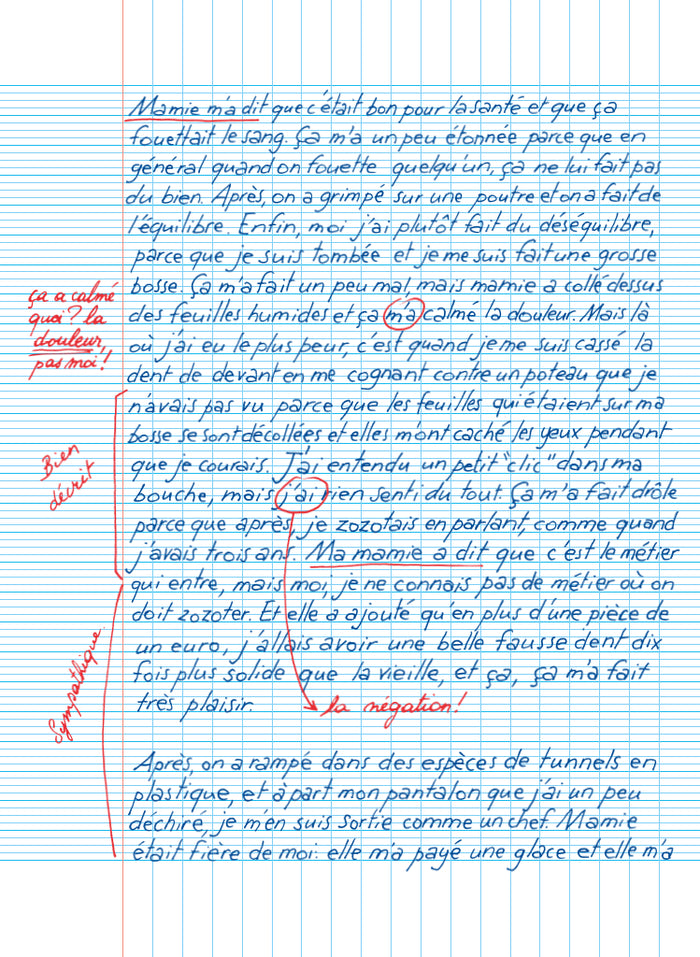 Mamie m'a dit que c'était bon pour la santé et que ça
fouettait le sang. Ça m'a un peu étonnée parce que en
général quand on fouette quelqu'un, ça ne lui fait pas
du bien. Après, on a grimpé sur une poutre et on a fait de
l'équilibre. Enfin, moi j'ai plutôt fait du déséquilibre,
parce que je suis tombée et je me suis fait une grosse
bosse. Ça m'a fait un peu mal, mais mamie a collé dessus
des feuilles humides et ça m'a calmé la douleur. Mais là
où j'ai eu le plus peur, c'est quand je me suis cassé la
dent de devant en me cognant contre un poteau que je
n'avais pas vu parce que les feuilles qui étaient sur ma
bosse se sont décollées et elles m'ont caché les yeux pendant
que je courais. J'ai entendu un petit "clic" dans ma
bouche, mais j'ai rien senti du tout. Ça m'a fait drôle
parce que après, je zozotais en parlant, comme quand
j'avais trois ans. Ma mamie a dit que c'est le métier
qui entre, mais moi, je ne connais pas de métier où on
doit zozoter. Et elle a ajouté qu'en plus d'une pièce de
un euro, j'allais avoir une belle fausse dent dix
fois plus solide que la vieille, et ça, ça m'a fait
très plaisir.
Après, on a rampé dans des espèces de tunnels en
plastique, et à part mon pantalon que j'ai un peu
déchiré, je m'en suis sortie comme un chef. Mamie
était fière de moi: elle m'a payé une glace et elle m'a
ça a calmé
quoi? la
douleur,
pas moi!
Bien
décrit
Sympathique
la négation!